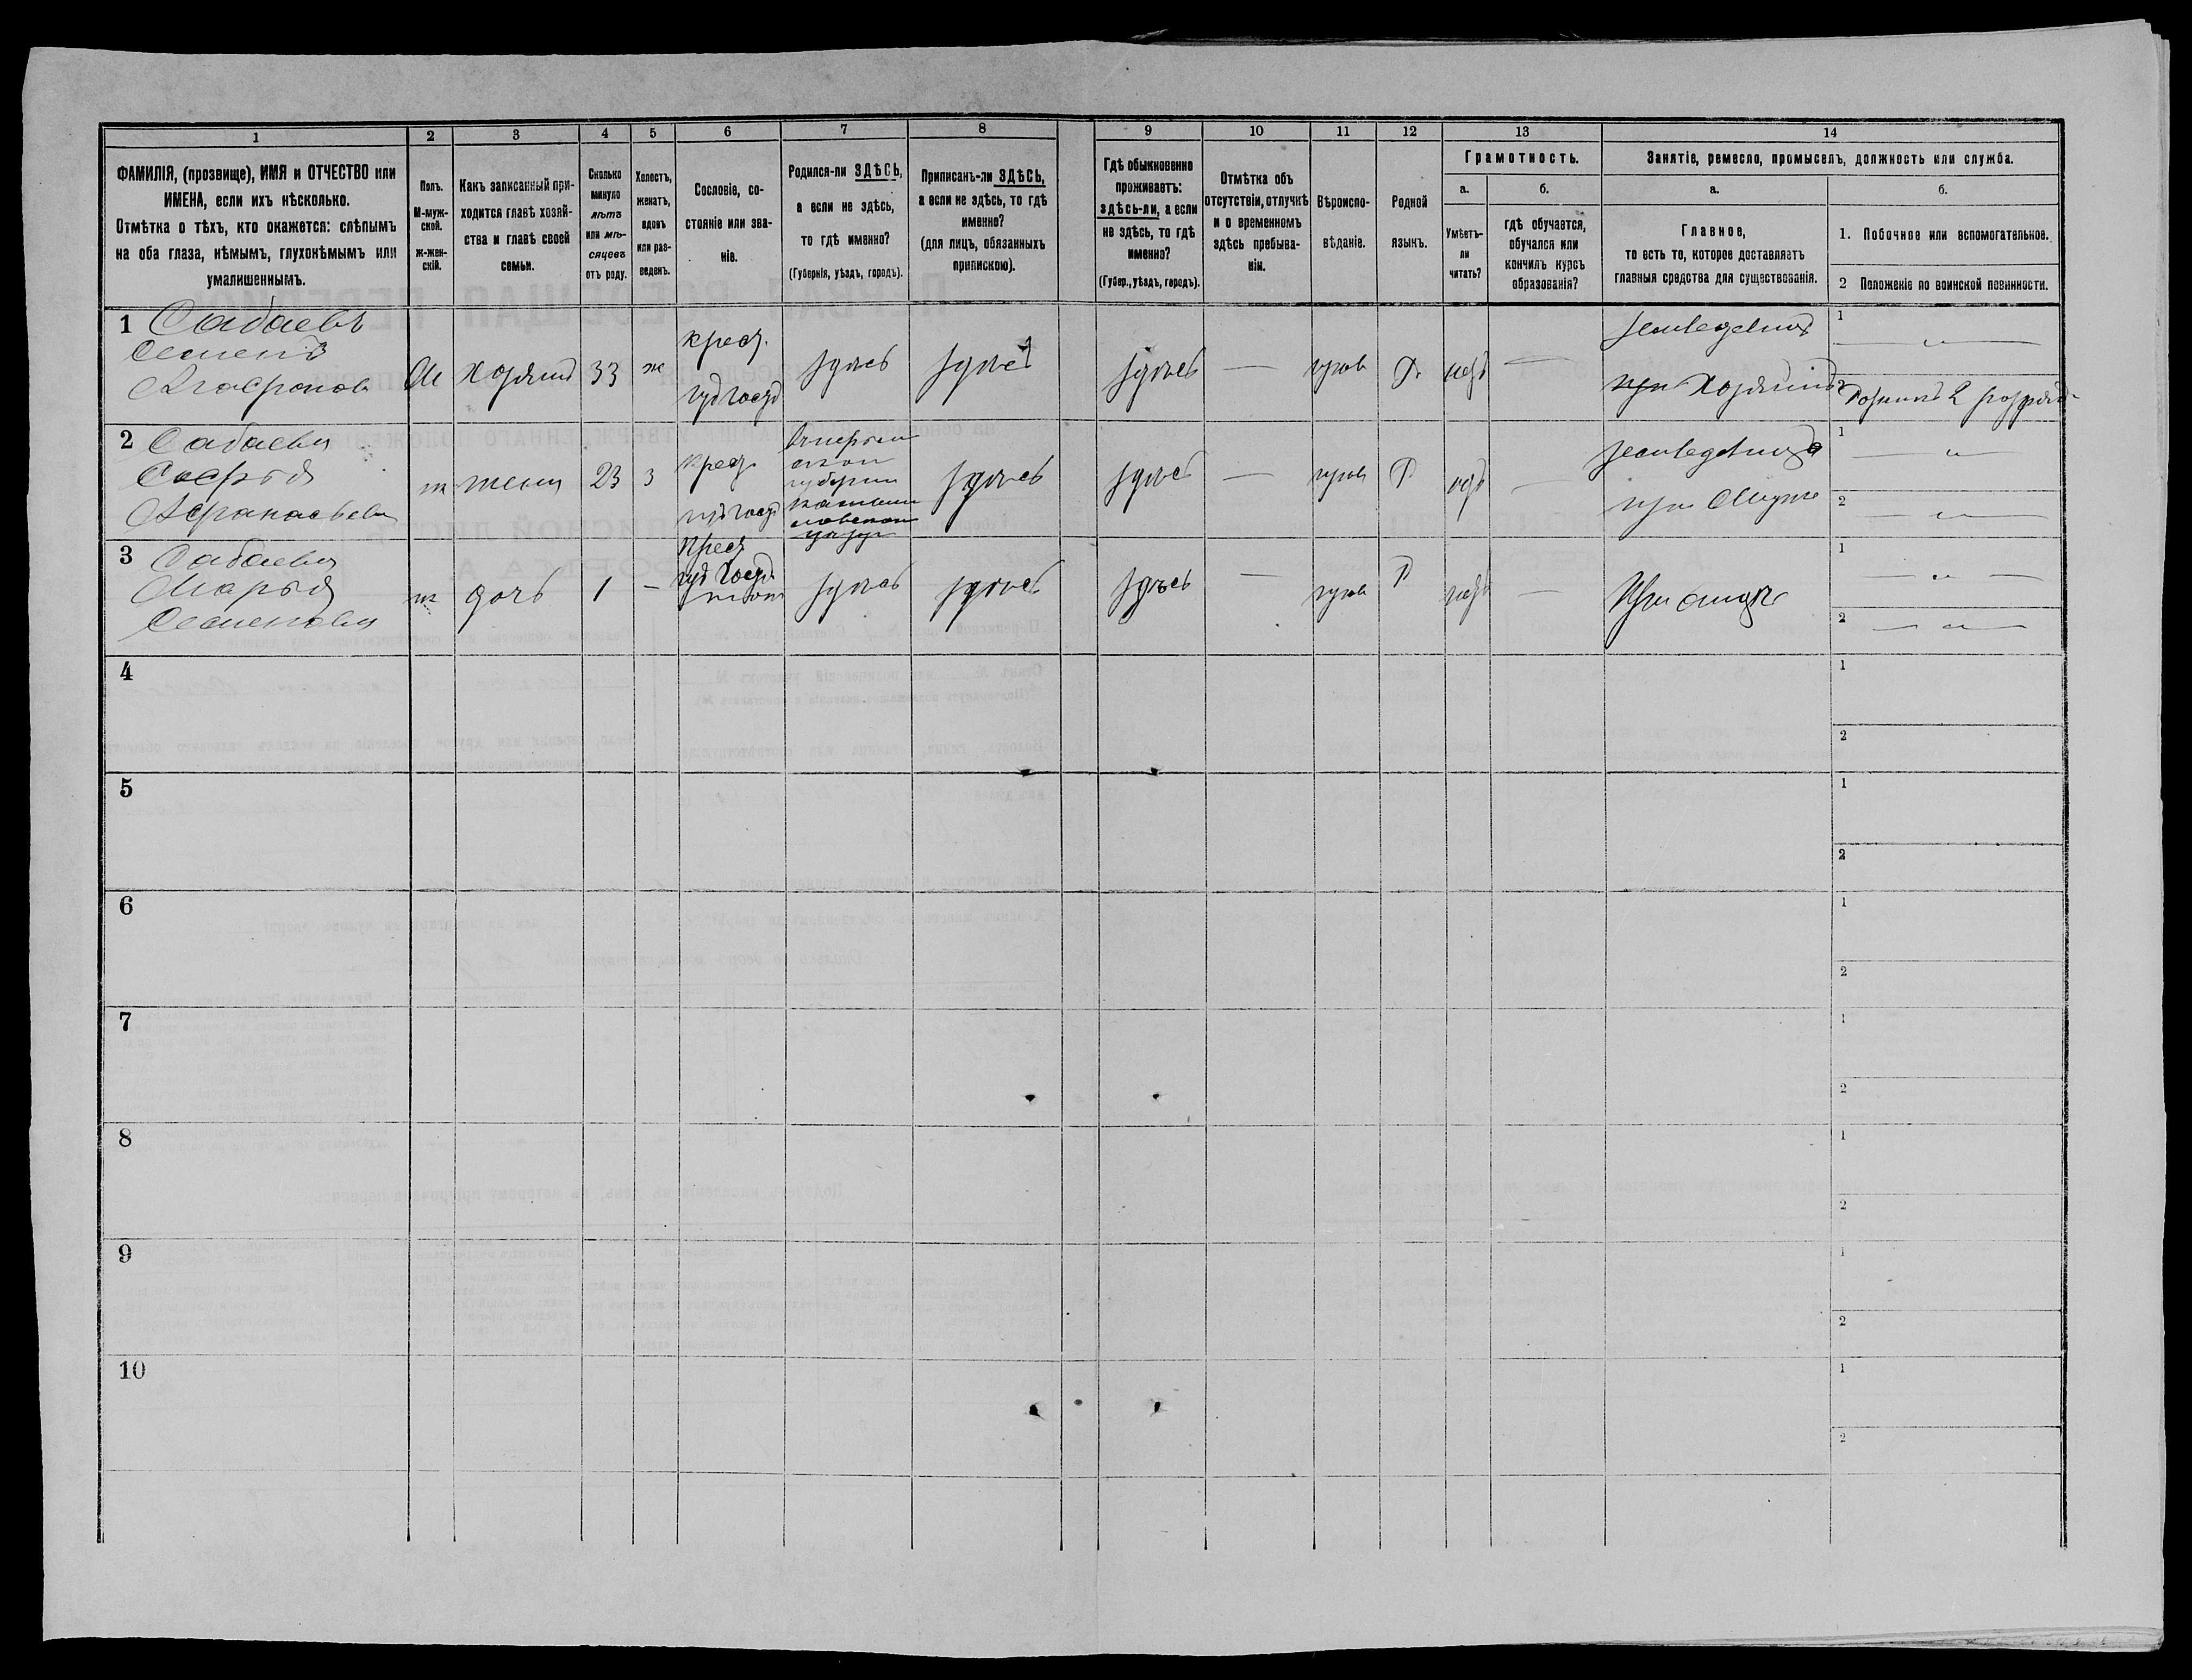 1 2 3 4 5 6 7 8 9 10 11 12 13 14
ФАМИЛІЯ, (прозвище), ИМЯ и ОТЧЕСТВО или
ИМЕНА, если ихъ нѣсколько.
Отмѣтка о тѣхъ, кто окажется: слѣпымъ
на оба глаза, нѣмымъ, глухонѣмымъ или
умалишеннымъ.
Полъ.
М-муж-
ской.
ж-жен-
скій.
Какъ записанный при-
ходится главѣ хозяй-
ства и главѣ своей
семьи.
Сколько
минуло
лѣтъ
или мѣ-
сяцевъ
отъ роду.
Холостъ,
женатъ,
вдовъ
или раз-
веденъ.
Сословіе, со-
стояніе или зва-
ніе.
Родился-ли ЗДѢСЬ,
а если не здѣсь,
то гдѣ именно?
(Губернія, уѣздъ, городъ).
Приписанъ-ли ЗДѢСЬ,
а если не здѣсь, то гдѣ
именно?
(для лицъ, обязанныхъ
припискою).
Гдѣ обыкновенно
проживаетъ:
здѣсь-ли, а если
не здѣсь, то гдѣ
именно?
(Губер., уѣздъ, городъ).
Отмѣтка объ
отсутствіи, отлучкѣ
и о временномъ
здѣсь пребыва-
ніи.
Вѣроиспо-
вѣданіе.
Родной
языкъ.
Грамотность.
а.
Умѣетъ-
ли
читать?
б.
гдѣ обучается,
обучался или
кончилъ курсъ
образованія?
Занятіе, ремесло, промыселъ, должность или служба.
а.
Главное,
то есть то, которое доставляетъ
главныя средства для существованія.
б.
1. Побочное или вспомогательное.
2 Положеніе по воинской повинности.
1 Сабаевъ
Семенъ
Агафонов
М хозяинъ 33 ж
крест.
здѣсь здѣсь здѣсь — прав Р. нѣтъ —
хозяинъ
1 — " —
2 разряда
2 Сабаева
Софья
Афанасьева
ж жена 23 з
крест
губерніи
здѣсь здѣсь — прав Р нѣтъ —
при мужѣ
1 — " —
2 — " —
3 Сабаева
Марья
Семенова
ж дочь 1 —
крест
здѣсь здѣсь здѣсь — прав Р нѣтъ —
При отцѣ
1 — " —
2 — " —
4 1
2
5 1
2
6 1
2
7 1
2
8 1
2
9 1
2
10 1
2